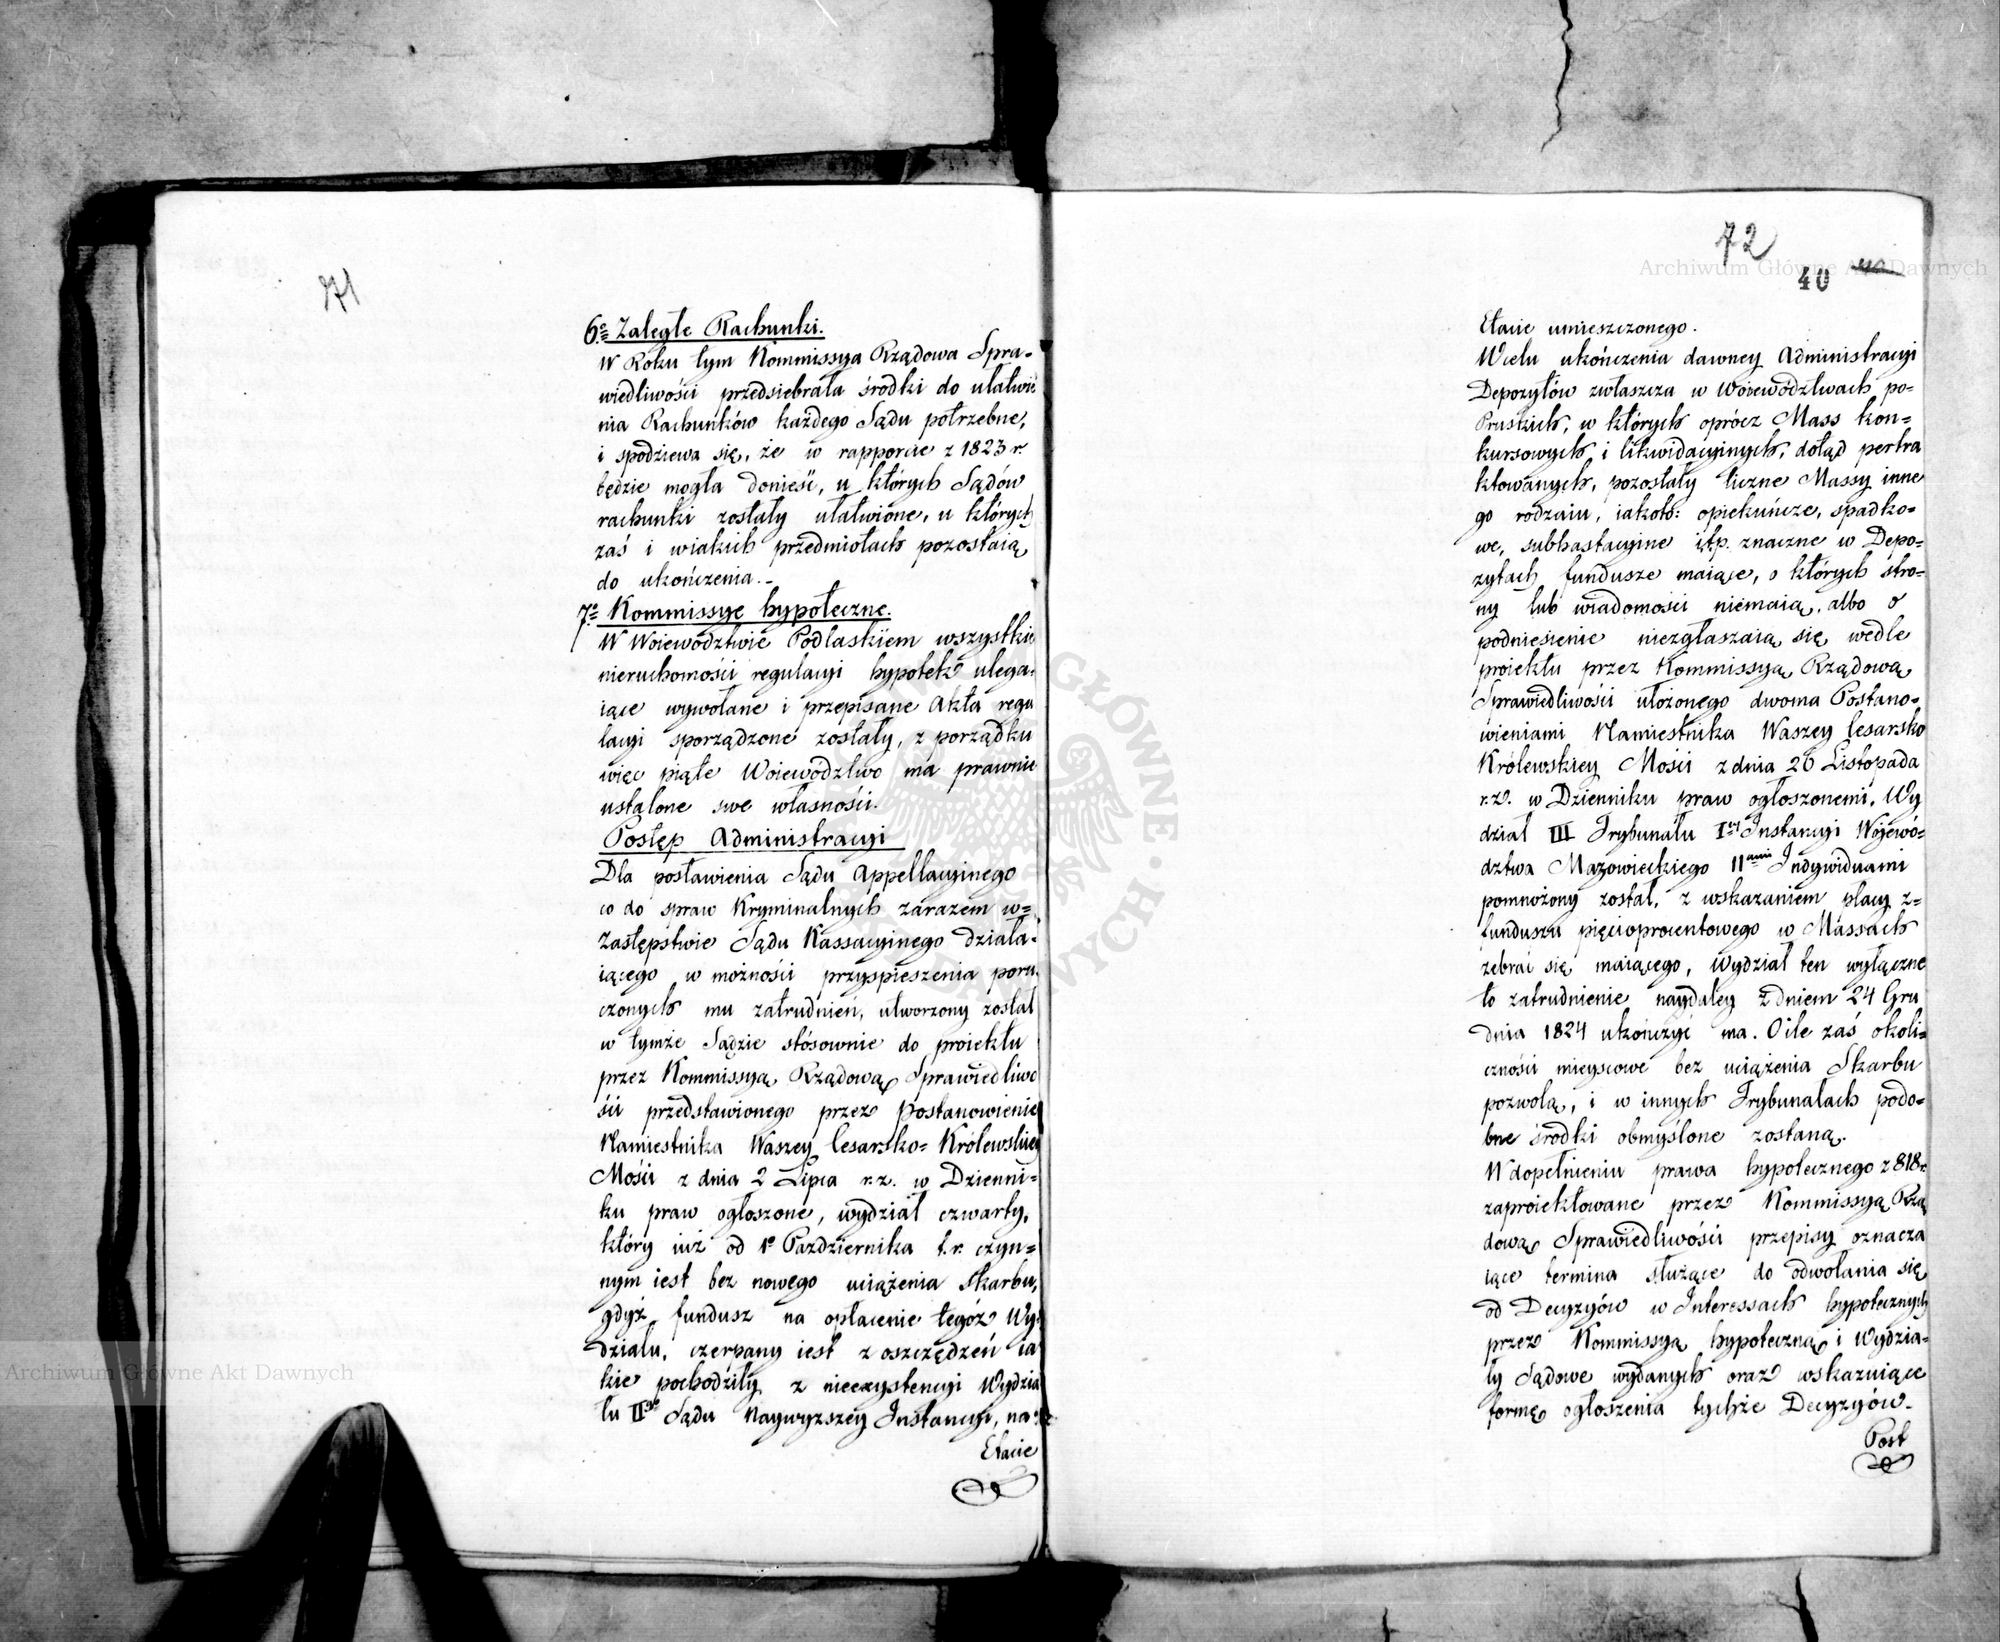 71
6o Zaległe Rachunki.
W Roku tym Kommissya Rządowa Spra-
wiedliwości przedsiebrała środki do ułatwie
nia Rachunków każdego Sądu potrzebne,
i spodziewa się, że w rapporcie z 1823 r.
będzie mogła donieść, u których Sądów
rachunki zostały ułatwione, u których
zaś i w iakich przedmiotach pozostaią
do ukończenia.-
7o Kommissye hypoteczne.
W Woiewództwie Podlaskiem wszystkie
nieruchomości regulacyi hypotek ulega-
iące wywołane i przepisane Akta regu
lacyi sporządzone zostały, z porządku
więc piąte Woiewództwo ma prawnie
ustalone swe własności.
Postęp Administracyi
Dla postawienia Sądu Appellacyinego
co do spraw Kryminalnych zarazem w=
Zastępstwie Sądu Kassacyinego działa-
iącego w możności przyspieszenia poru
czonych mu zatrudnień, utworzony został
w tymże Sądzie stósownie do proiektu
przez Kommissyą Rządową Sprawiedliwo
ści przedstawionego przez Postanowienie
Namiestnika Waszey Cesarsko=Królewskiey
Mości z dnia 2 Lipca r.z. w Dzienni-
ku praw ogłoszone, wydział czwarty,
który iuż od 1o Pazdziernika t.r. czyn=
nym iest bez nowego uciążenia Skarbu,
gdyż fundusz na opłacenie tegóż Wy-
działu, czerpany iest z oszczędzeń ia
kie pochodziły z nieexystencyi Wydzia
łu IIgo Sądu Naywyzszey Instancyi, na
Etacie
72
40
Etacie umieszczonego.
W celu ukończenia dawney Administracyi
Depozytów zwłaszcza w Woiewództwach po-
Pruskich, w których oprócz Mass kon=
kursowych i likwidacyinych, dotąd pertra
ktowanych, pozostały liczne Massy inne
go rodzaiu, iakoto: opiekuńcze, spadko=
we, subhastacyine itp. znaczne w Depo=
zytach fundusze maiące, o których stro=
ny lub wiadomości niemaią, albo o
podniesienie niezgłaszaią się, wedle
proiektu przez Kommissyą Rządową
Sprawiedliwości ułożonego dwoma Postano=
wieniami Namiestnika Waszey Cesarsko
Królewskiey Mości z dnia 26 Listopada
r.z. w Dzienniku praw ogłoszonemi, Wy
dział III Trybunału Iey Instancyi Wojewó=
dztwa Mazowieckiego 11ami Indywiduami
pomnożony został, z wskazaniem płacy z=
funduszu pięcioprocentowego w Massach
zebrać się maiącego, Wydział ten wyłączne
to zatrudnienie naydaley z dniem 24 Gru
dnia 1824 ukończyć ma. O ile zaś okoli=
czności mieyscowe bez uciążenia Skarbu
pozwolą, i w innych Trybunalach podo=
bne środki obmyślone zostaną.
W dopełnieniu prawa hypotecznego z 818 r.
zaproiektowane przez Kommissyą Rzą
dową Sprawiedliwości przepisy oznacza
iące termina służące do odwołania się
od Decyzyów w Interessach hypotecznych
przez Kommissyą hypoteczną i Wydzia=
ły Sądowe wydanych oraz wskazuiące
formę ogłoszenia tychże Decyzyów.
Post
Archiwum Główne Akt Dawnych
Archiwum Główne Akt Dawnych